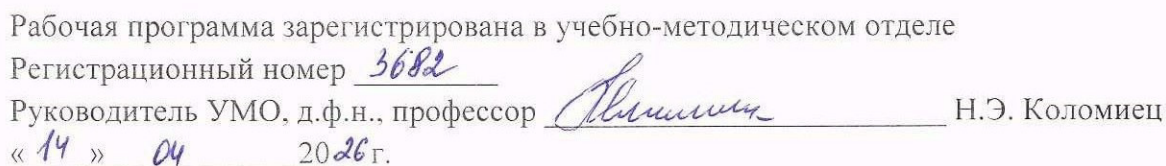 Рабочая программа зарегистрирована в учебно-методическом отделе
Регистрационный номер 3682
Руководитель УМО, д.ф.н., профессор Н.Э. Коломиец
« 14 » 04 2026 г.